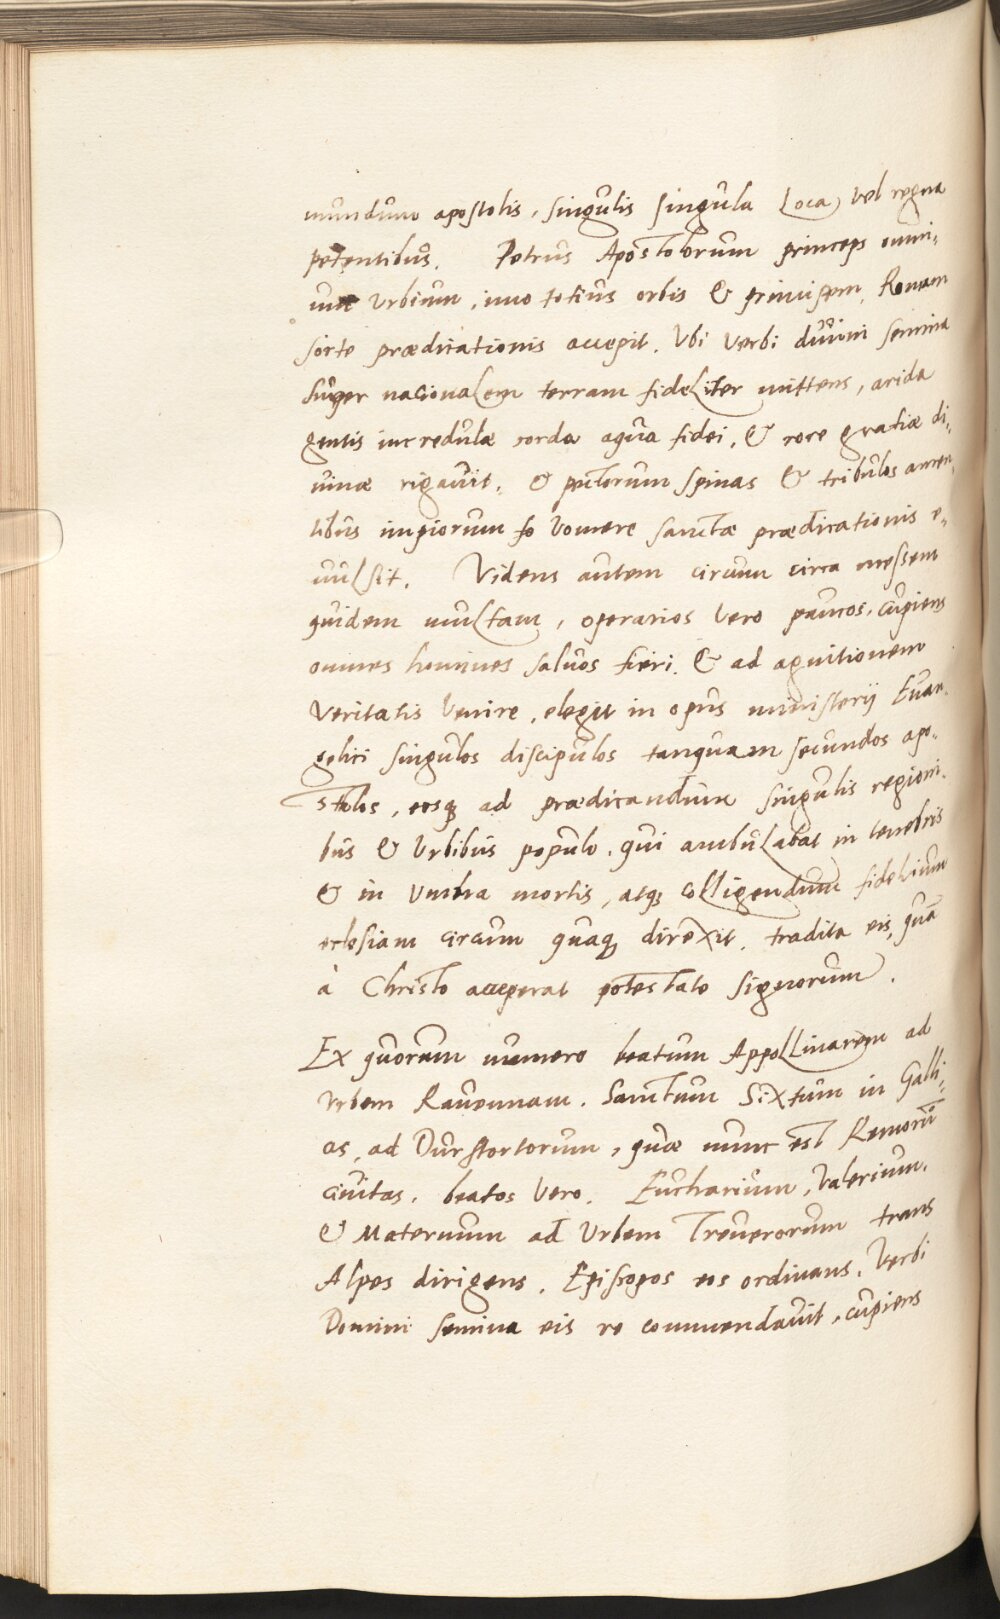 mundum apostolis, singulis singula Loca, vel regna
petentibus. Petrus Apostolorum princeps omni-
um Urbium, imo totius orbis & principem, Romam
sorte prædicationis accepit. Ubi verbi divini semina
super nacionalem terram fideliter mittens, arida
gentis incredulæ corda aqua fidei, & rore gratiæ di-
vinæ rigavit, & peccatorum spinas & tribulos
tibus impiorum vomere sanctæ prædicationis e-
vulsit. Videns autem circum circa messem
quidem multam, operarios vero paucos, cupiens
omnes homines salvos fieri, & ad agnitionem
Veritatis Venire, elegit in opus ministerij Evan-
gelici singulos discipulos tanquam secundos apo-
stolos, eosq ad prædicandum singulis regioni-
bus & Urbibus populo, qui ambulabat in tenebris
& in Umbra mortis, atq colligendum fidelium
eclesiam circum quaq direxit, tradita eis, quā
à Christo acceperat potestate signorum.
Ex quorum numero beatum Appollinarem ad
Urbem Ravennam. Sanctum Sixtum in Galli-
as, ad Durstortorum, quæ nunc est Remorū
civitas, beatos vero. Eucharium, Valerium,
& Maternum ad Urbem Treverorum trans
Alpes dirigens, Episcopos eos ordinans, Verbi
Domini semina eis re commendavit, cupiens